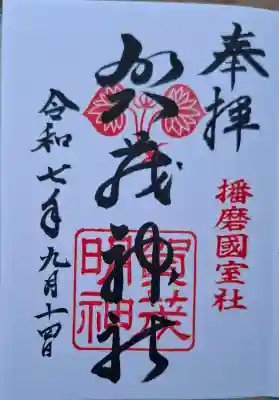 奉拝
播磨國室社
加茂神社
賀茂
明神
令和七年九月十四日